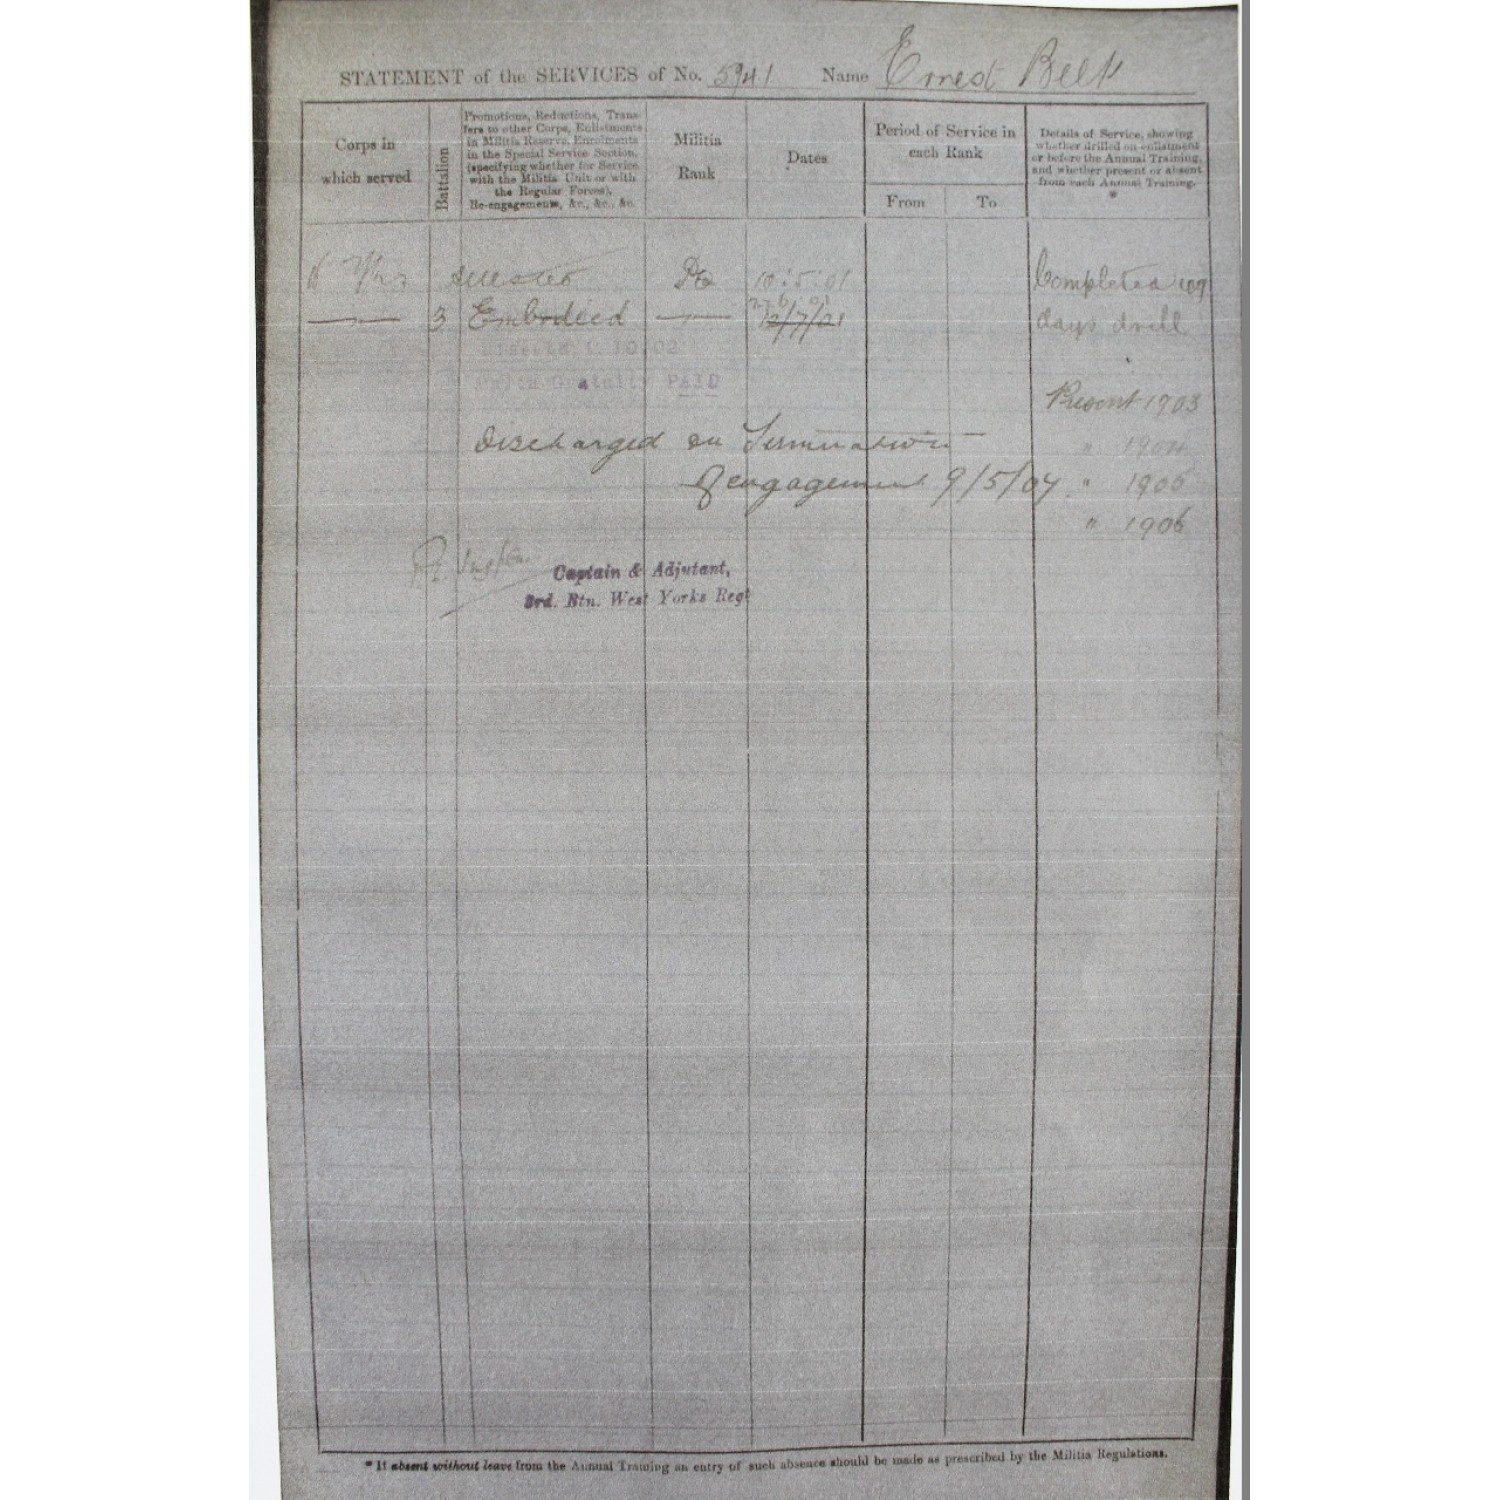 STATEMENT of the SERVICES of No. 5941 Name Ernest Belk
Corps in
which served
Battalion
Promotions, Reductions, Trans-
fers to other Corps, Enlistments
in Militia Reserve, Enrolments
in the Special Service Section,
(specifying whether for Service
with the Militia Unit or with
the Regular Forces),
Re-engagements, &c., &c., &c.
Militia
Rank
Dates
Period of Service in
each Rank
From
To
Details of Service, showing
whether drilled on enlistment
or before the Annual Training,
and whether present or absent
from each Annual Training.
*
10.5.01
Completed 109
3 Embodied 27.6.01
12/7/01
days drill
1.10.02
Gratuity PAID
Present 1903
Discharged on Termination
" 1904
of engagement 9/5/07
" 1905
" 1906
Captain & Adjutant,
3rd. Btn. West Yorks Regt
* If absent without leave from the Annual Training an entry of such absence should be made as prescribed by the Militia Regulations.